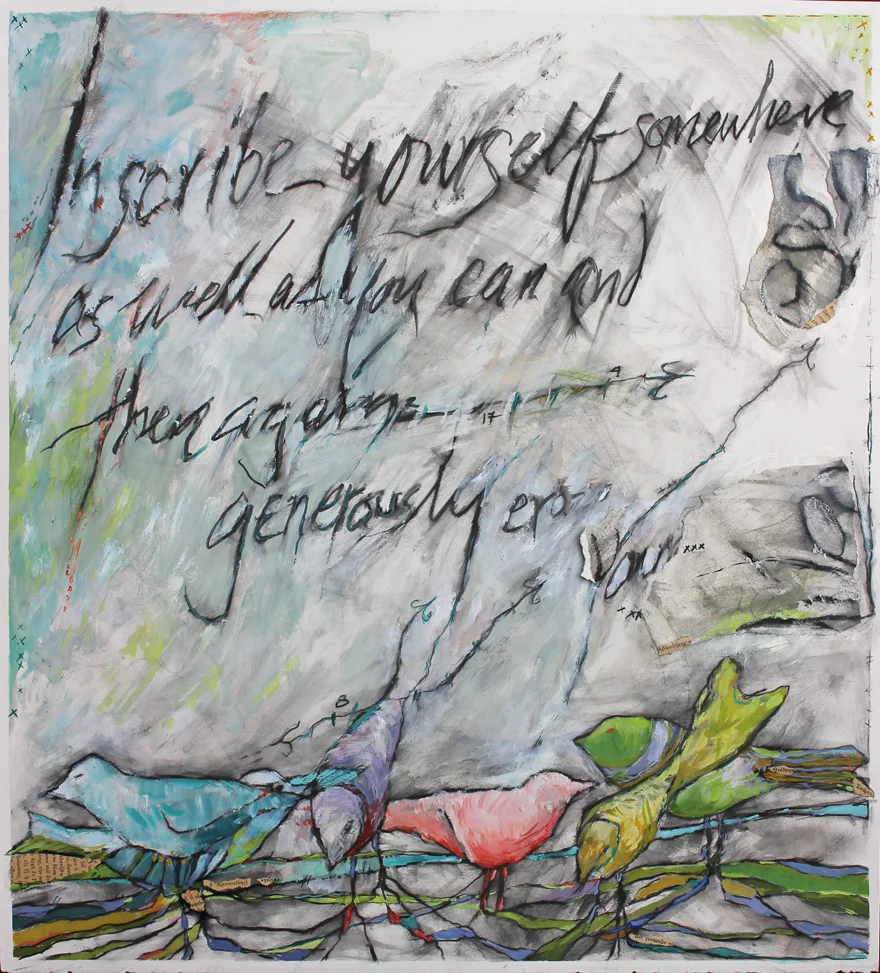 Inscribe yourself somewhere
as well as you can and
then again
4
17
generously
your
xxx
8